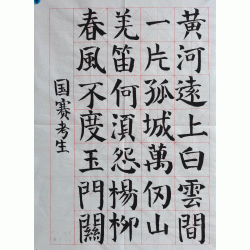 黃河遠上白雲間
一片孤城萬仞山
羌笛何須怨楊柳
春風不度玉門關
国赛考生